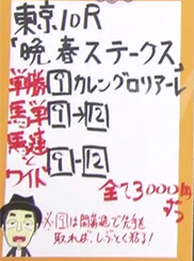 東京10R
「晩春ステークス」
単勝 9 カレングロリアーレ
馬単 9→12
馬連と
ワイド 9-12
全て3000円
ずつ
※9は開幕週で先手を
取れば、しぶとく粘る!